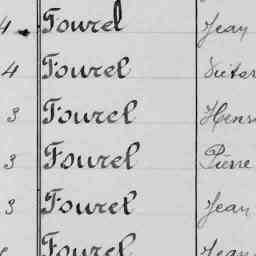 4 Fourel Jean
4 Fourel
3 Fourel Henri
3 Fourel Pierre
3 Fourel Jean
Fourel Jean